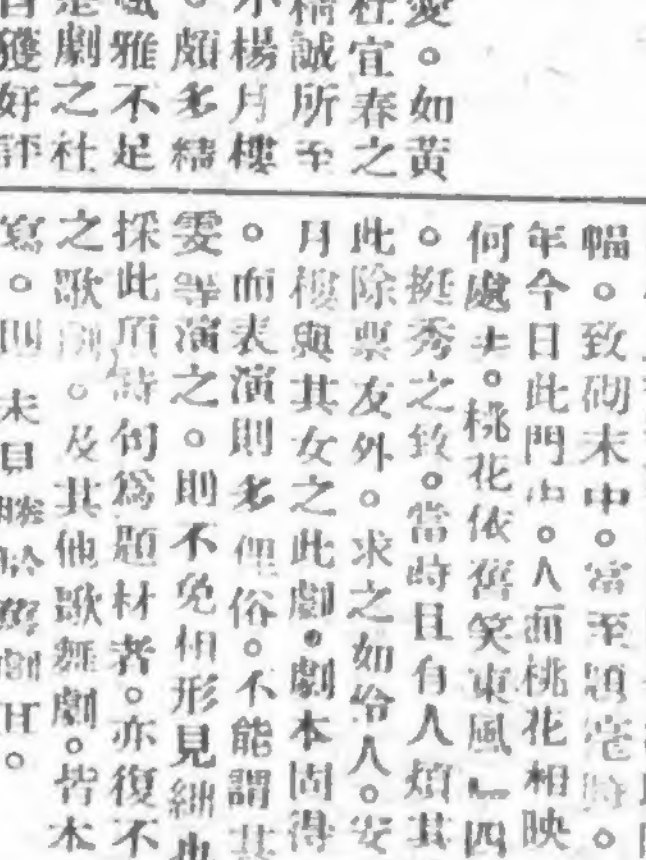 愛。如黃
杜宜春之
誠所至
小楊月樓
。頗多精
雅不足
劇之社
獲好評
幅。致砌末中。當至題壁時。
年今日此門中。人面桃花相映
何處去。桃花依舊笑東風』四
。挺秀之致。當時且有人煩其
此除票友外。求之如俗人。安
月樓與其女之此劇。劇本固得
。而表演則多俚俗。不能謂其
雯等演之。則不免相形見絀也
採此項詩句爲題材者。亦復不
之歌劇。及其他歌舞劇。皆本
寫。則未見勝於舊劇耳。